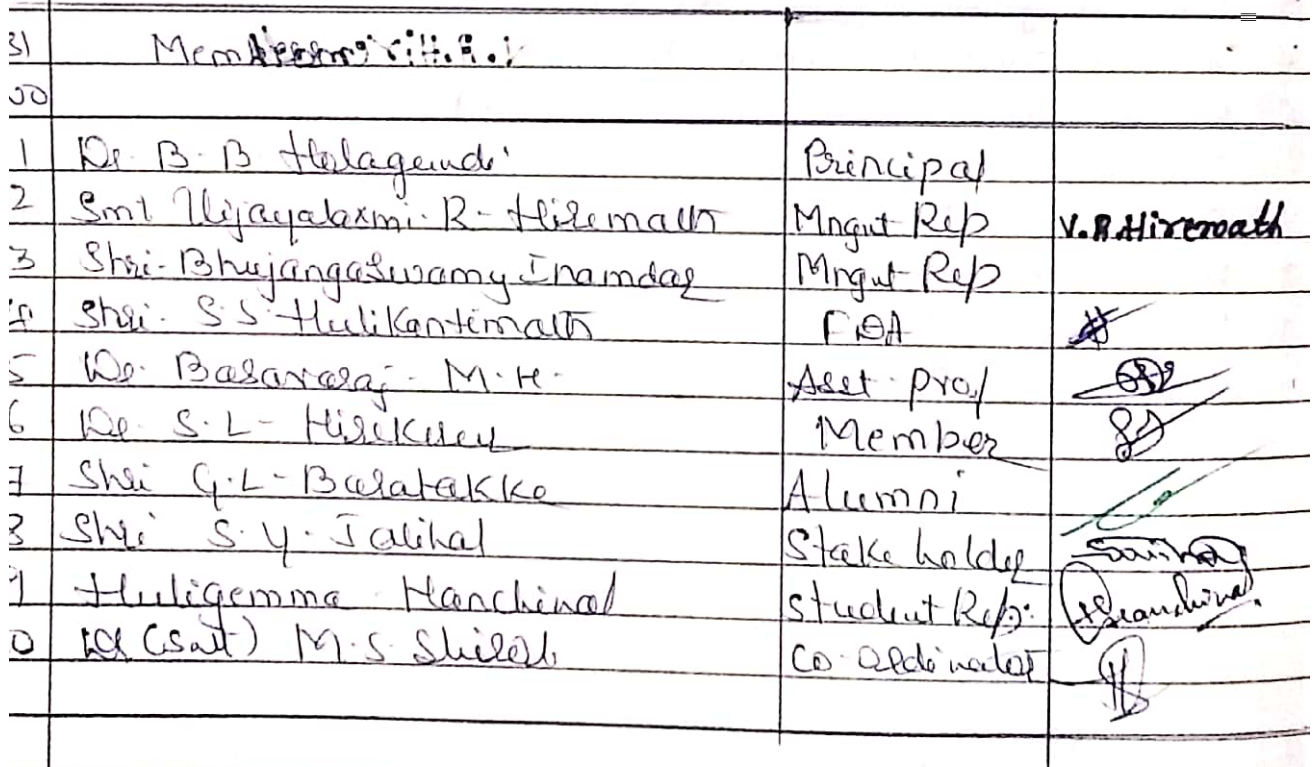 31
00
1 Dr. B. B Holagundi Principal
2 Smt Vijayalaxmi. R. Hiremath Mngut Rep V.R.Hiremath
3 Shri. Bhujangaswamy Inamdar Mngut Rep
4 Shri. S.S. Hulikantimath FDA
5 Dr. Basavaraj. M.H. Asst. prof
6 Dr. S.L. Hirekurey Member
7 Shri G.L. Baratakke Alumni
8 Shri S.Y. Jalihal Stake holder
9 Huligemma Hanchinal Student Rep:
0 Dr (Smt) M.S. Co-ordinator